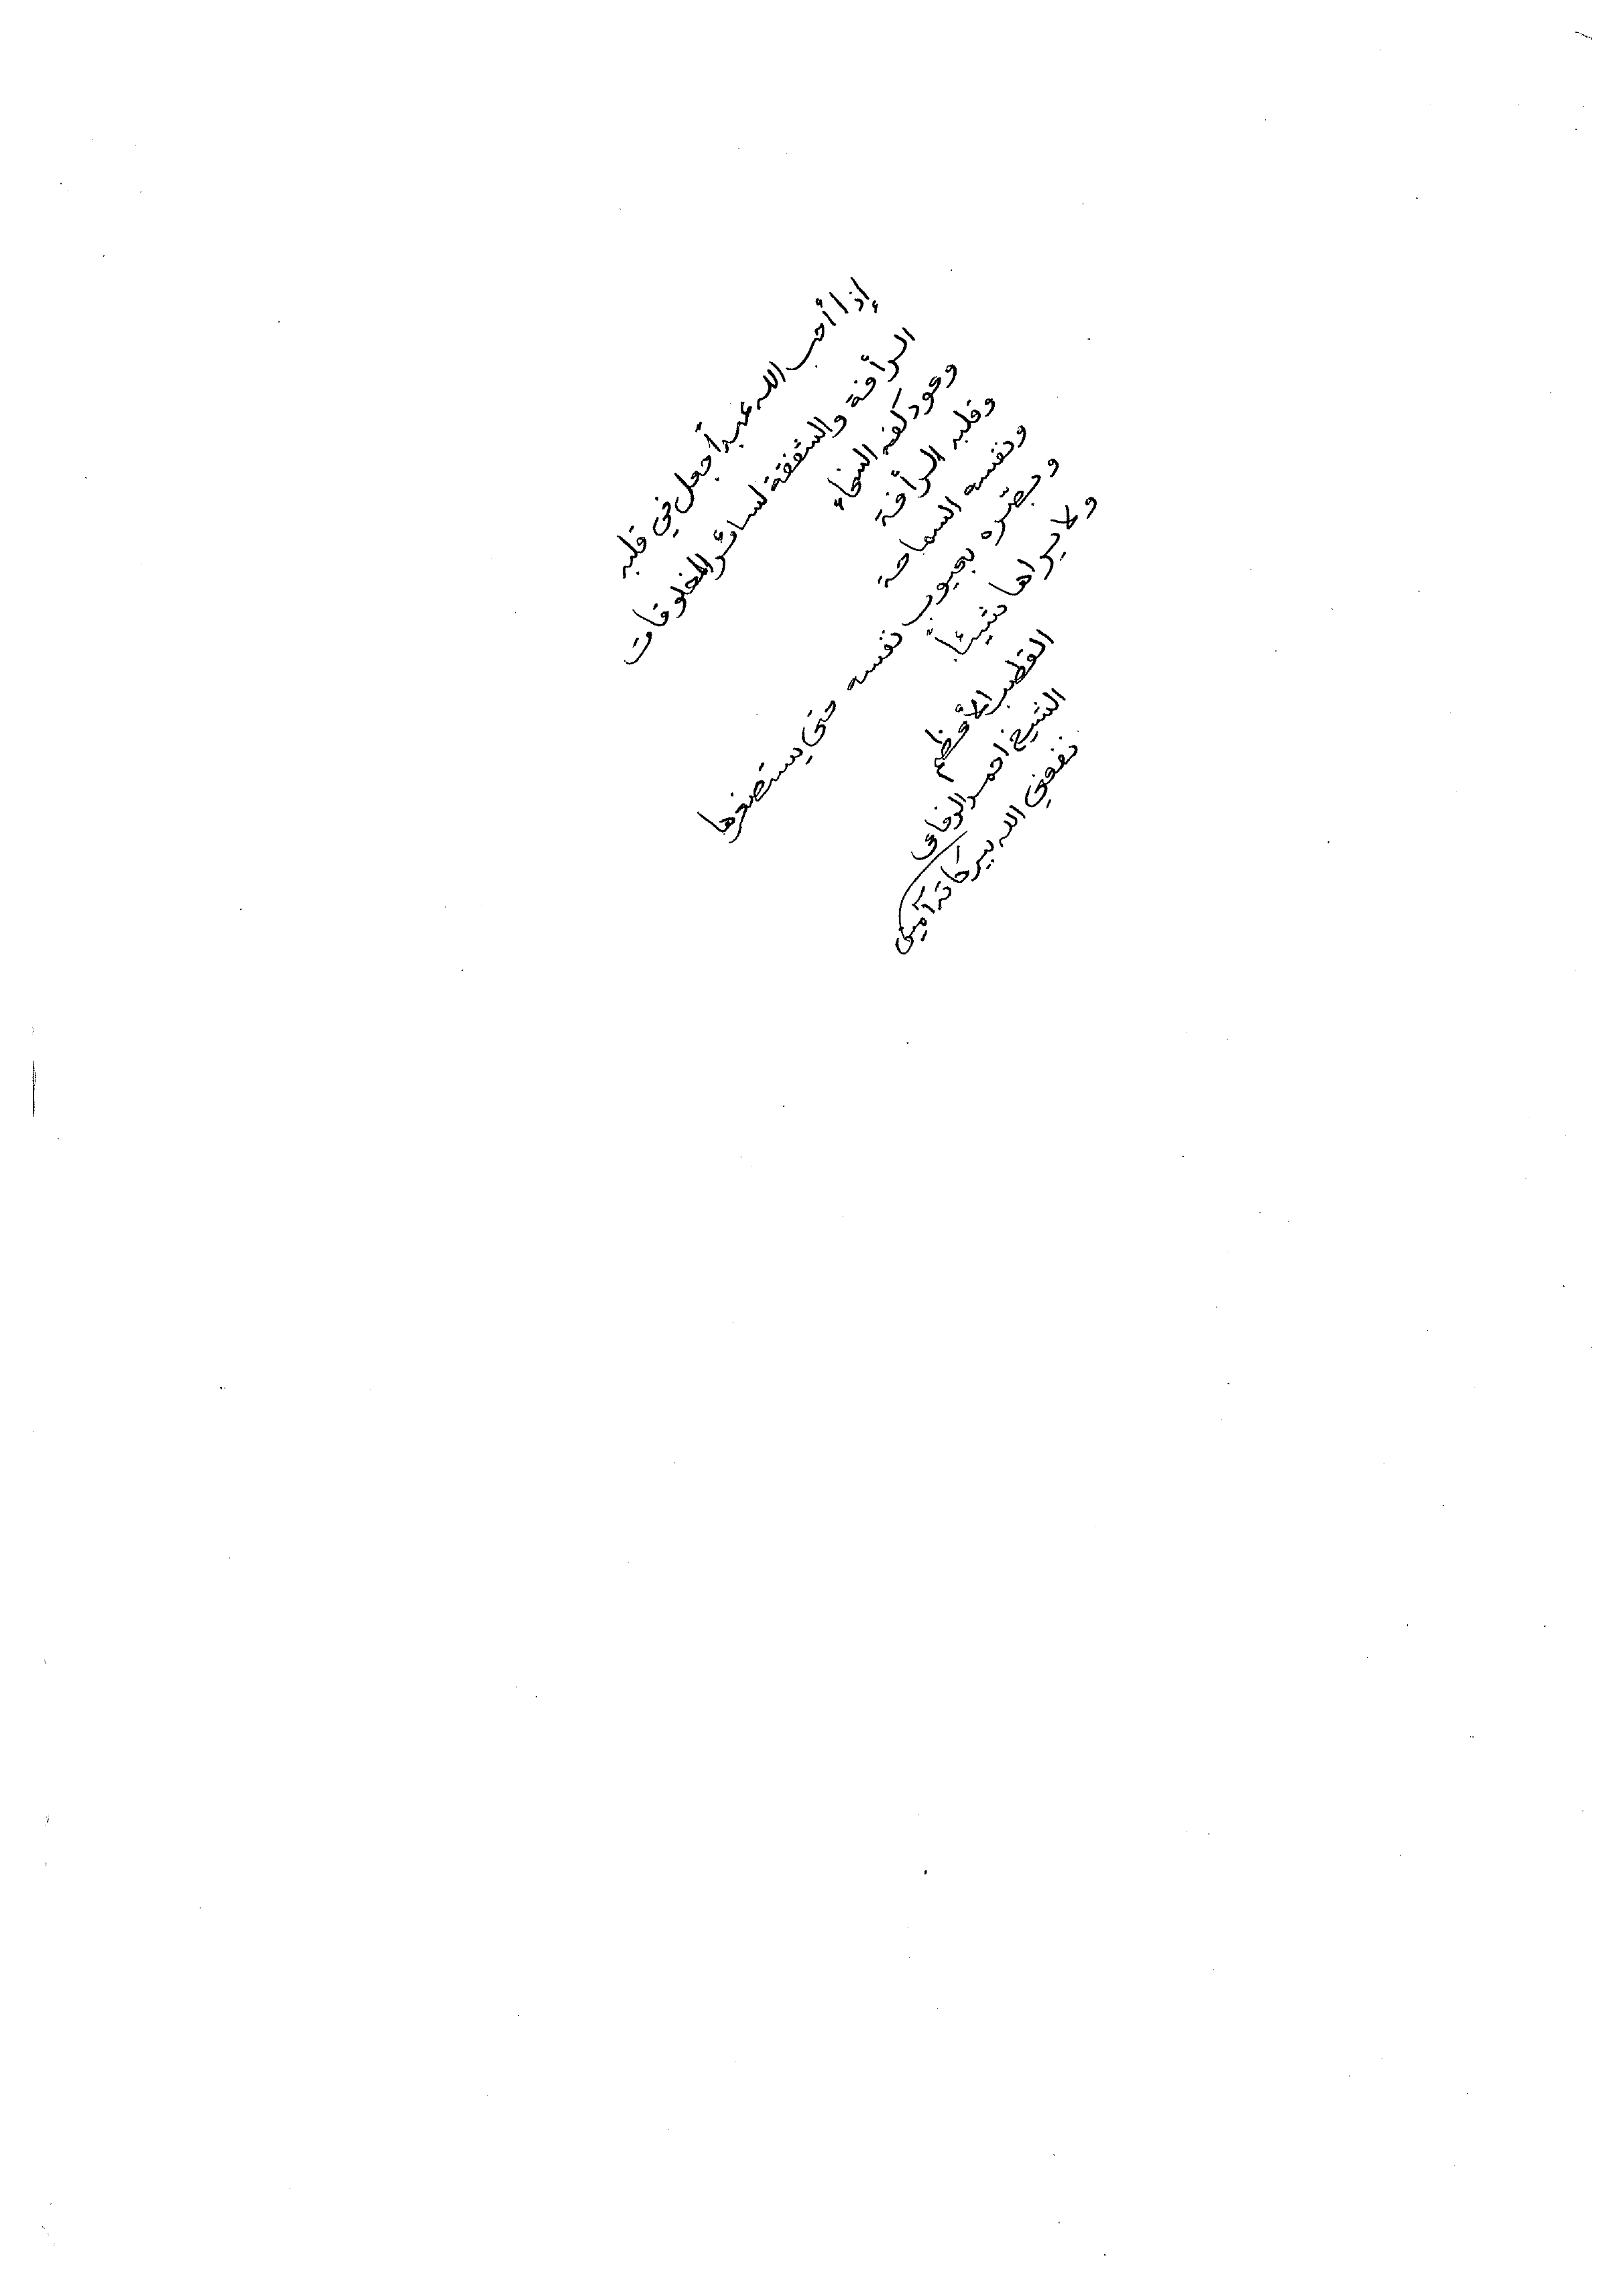 إذا أحب الله عبداً جعل في قلبه
الرأفة والشفقة لسائر المخلوقات
وعود كفه السخاء
وقلبه الرأفة
ونفسه السماحة
وبصّره بعيوب نفسه حتى يستصغرها
ولا يراها شيئاً.
القطب الأعظم
الشيخ احمد الرفاعى
نفعني الله ببركاته آمين